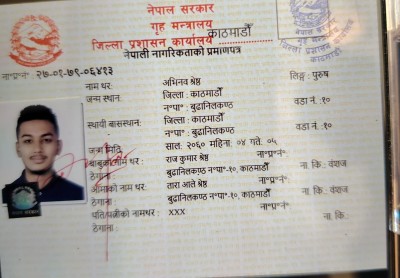 नेपाल सरकार
गृह मन्त्रालय
जिल्ला प्रशासन कार्यालय काठमाडौं
नेपाली नागरिकताको प्रमाणपत्र
ना॰प्र॰नं॰ २७-०१-७९-०६४१३
नाम थर: अभिनव श्रेष्ठ लिङ्ग: पुरुष
जन्म स्थान: जिल्ला : काठमाडौं
न॰पा॰ : बुढानिलकण्ठ वडा नं.:१०
स्थायी बासस्थान: जिल्ला : काठमाडौं
न॰पा॰ : बुढानिलकण्ठ वडा नं.:१०
जन्म मिति: साल: २०६० महिना: ०४ गते: ०५
बाबुको नाम थर: राज कुमार श्रेष्ठ ना॰प्र॰नं॰
ठेगाना: बुढानिलकण्ठ न॰पा॰-१०, काठमाडौं ना. कि.: वंशज
आमाको नाम थर: तारा आते श्रेष्ठ ना॰प्र॰नं॰
ठेगाना: बुढानिलकण्ठ न॰पा॰-१०, काठमाडौं ना. कि.: वंशज
पति/पत्नीको नामथर: XXX ना॰प्र॰नं॰
ठेगाना: ना. कि.: